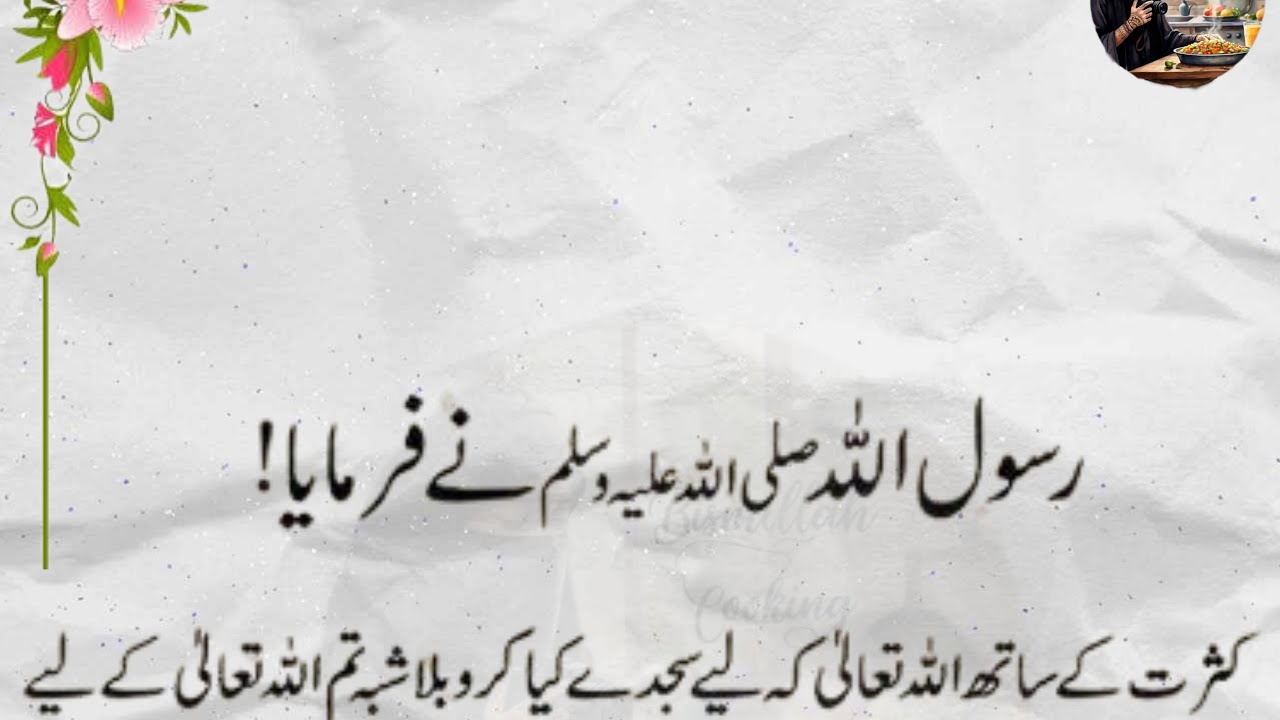 رسول اللہ صلی اللہ علیہ وسلم نے فرمایا!
Bismillah
Cooking
کثرت کے ساتھ اللہ تعالیٰ کہ لیے سجدے کیا کرو بلاشبہ تم اللہ تعالیٰ کے لیے